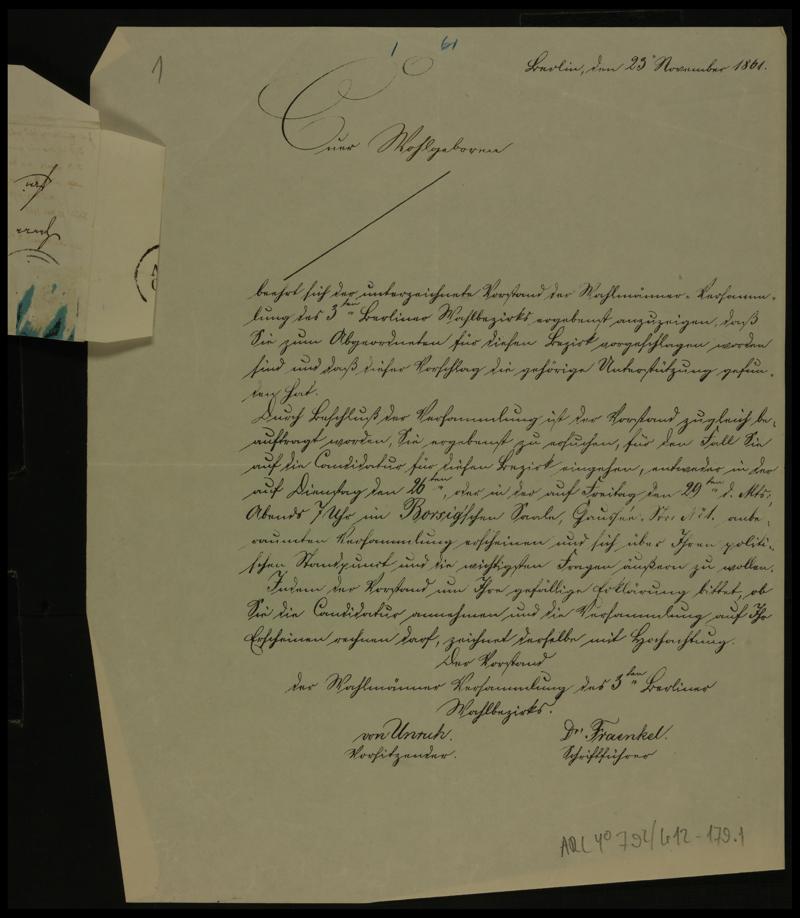 1 61
1
Berlin, den 23ᵗ November 1861.
Euer Wohlgeboren
beehrt sich der unterzeichnete Vorstand der Wahlmänner-Versamm-
lung des 3ten Berliner Wahlbezirks ergebenst anzuzeigen, daß
Sie zum Abgeordneten für diesen Bezirk vorgeschlagen worden
sind und daß dieser Vorschlag die gehörige Unterstützung gefun-
den hat.
Durch Beschluß der Versammlung ist der Vorstand zugleich be-
auftragt worden, Sie ergebenst zu ersuchen, für den Fall Sie
auf die Candidatur für diesen Bezirk eingehen, entweder in der
auf Dienstag den 26ten, oder in der auf Freitag den 29ten d. Mts.,
Abends 7 Uhr im Borsig'schen Saale, Chaussée-Str. № 1. anbe-
raumten Versammlung erscheinen und sich über Ihren politi-
schen Standpunct und die wichtigsten Fragen äußern zu wollen.
Indem der Vorstand um Ihre gefällige Erklärung bittet, ob
Sie die Candidatur annehmen und die Versammlung auf Ihr
Erscheinen rechnen darf, zeichnet derselbe mit Hochachtung.
Der Vorstand
der Wahlmänner Versammlung des 3ten Berliner
Wahlbezirks.
von Unruh. Dr. Fraenkel.
Vorsitzender. Schriftführer
ARC 4° 792/G12-179.1